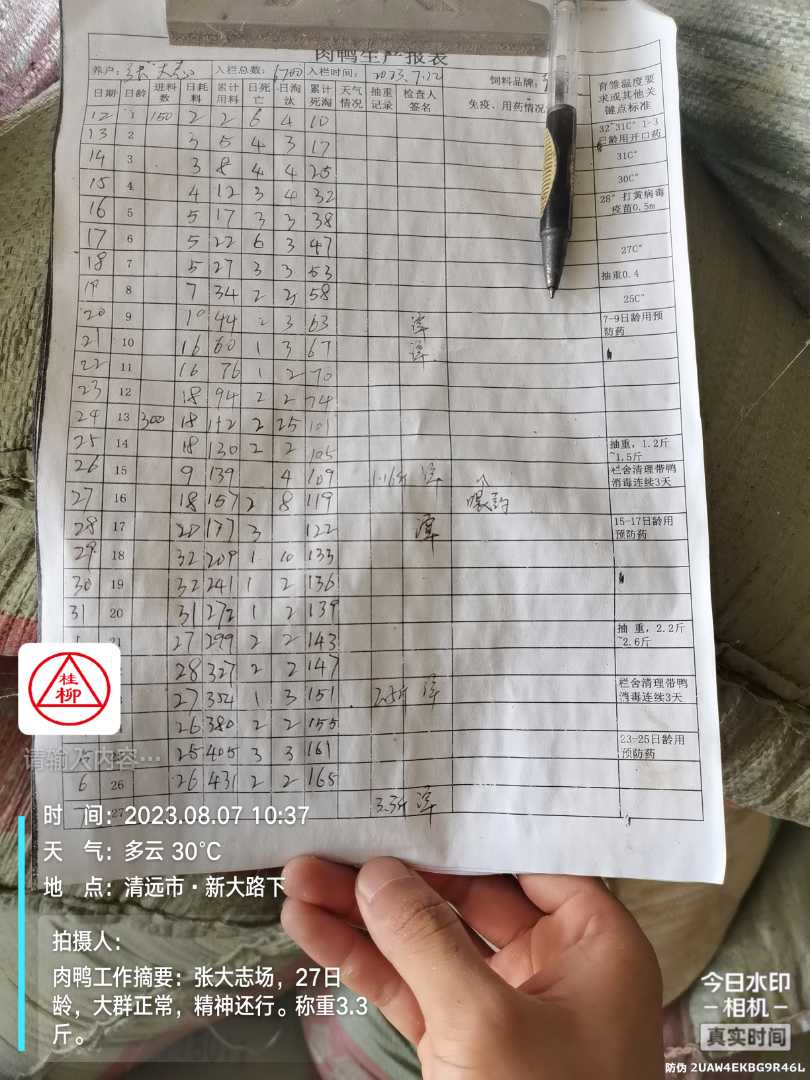 肉鸭生产报表
养户: 张大志 入栏总数: 6700 入栏时间: 2023.7.12 饲料品牌:
日期 日龄 进料数 日耗料 累计用料 日死亡 日淘汰 累计死淘 天气情况 抽重记录 检查人签名 免疫、用药情况 育雏温度要求或其他关键点标准
12 1 150 2 2 6 4 10 32~31C° 1-3日龄用开口药
13 2 3 5 4 3 17 31C°
14 3 3 8 4 4 25 30C°
15 4 4 12 3 4 32 28° 打黄病毒疫苗0.5m
16 5 5 17 3 3 38
17 6 5 22 6 3 47 27C°
18 7 5 27 3 3 53 抽重0.4
19 8 7 34 2 2 58 25C°
20 9 10 44 2 3 63 7-9日龄用预防药
21 10 16 60 1 3 67
22 11 16 76 1 2 70
23 12 18 94 2 2 74
24 13 300 18 112 2 25 101
25 14 18 130 2 2 105 抽重，1.2斤~1.5斤
26 15 9 139 4 109 1.16斤 栏舍清理带鸭消毒连续3天
27 16 18 157 2 8 119
28 17 20 177 3 122 15-17日龄用预防药
29 18 32 209 1 10 133
30 19 32 241 1 2 136
31 20 31 272 1 2 139
1 21 27 299 2 2 143 抽 重，2.2斤~2.6斤
28 327 2 2 147
27 354 1 3 151 栏舍清理带鸭消毒连续3天
26 380 2 2 155
25 405 3 3 161 23-25日龄用预防药
6 26 26 431 2 2 165
7 27 3.3斤
桂柳
请输入内容…
时 间: 2023.08.07 10:37
天 气: 多云 30℃
地 点: 清远市·新大路下
拍摄人:
肉鸭工作摘要: 张大志场，27日
龄，大群正常，精神还行。称重3.3
斤。
今日水印
-相机-
真实时间
防伪 2UAW4EKBG9R46L